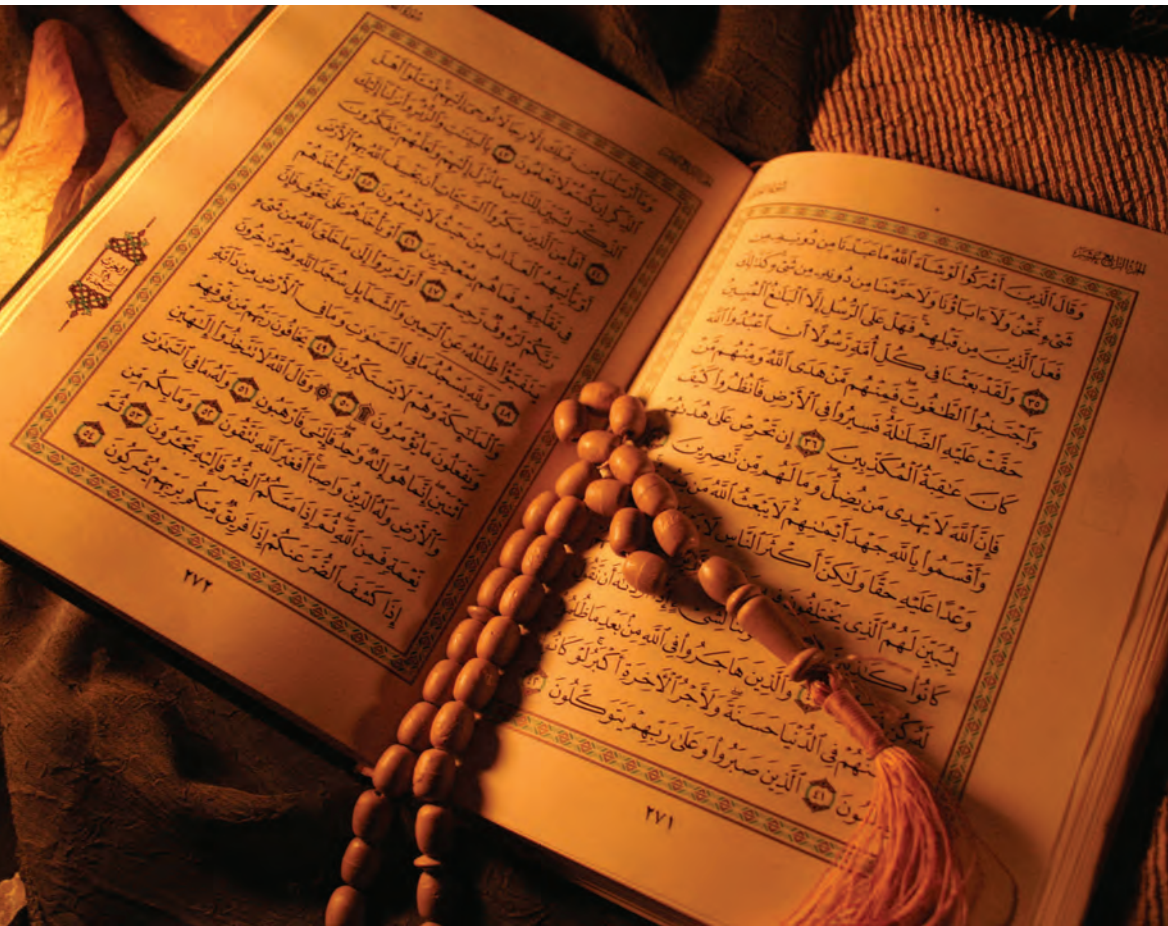 الجزء الرابع عشر
وَقَالَ ٱلَّذِينَ أَشْرَكُوا۟ لَوْ شَآءَ ٱللَّهُ مَا عَبَدْنَا مِن دُونِهِۦ مِن
شَىْءٍ نَّحْنُ وَلَآ ءَابَآؤُنَا وَلَا حَرَّمْنَا مِن دُونِهِۦ مِن شَىْءٍ كَذَٰلِكَ
فَعَلَ ٱلَّذِينَ مِن قَبْلِهِمْ فَهَلْ عَلَى ٱلرُّسُلِ إِلَّا ٱلْبَلَٰغُ ٱلْمُبِينُ
٣٥ وَلَقَدْ بَعَثْنَا فِى كُلِّ أُمَّةٍ رَّسُولًا أَنِ ٱعْبُدُوا۟ ٱللَّهَ
وَٱجْتَنِبُوا۟ ٱلطَّٰغُوتَ فَمِنْهُم مَّنْ هَدَى ٱللَّهُ وَمِنْهُم مَّنْ
حَقَّتْ عَلَيْهِ ٱلضَّلَٰلَةُ فَسِيرُوا۟ فِى ٱلْأَرْضِ فَٱنظُرُوا۟ كَيْفَ
كَانَ عَٰقِبَةُ ٱلْمُكَذِّبِينَ ٣٦ إِن تَحْرِصْ عَلَىٰ هُدَىٰهُمْ
فَإِنَّ ٱللَّهَ لَا يَهْدِى مَن يُضِلُّ وَمَا لَهُم مِّن نَّٰصِرِينَ
وَأَقْسَمُوا۟ بِٱللَّهِ جَهْدَ أَيْمَٰنِهِمْ لَا يَبْعَثُ ٱللَّهُ مَن
وَعْدًا عَلَيْهِ حَقًّا وَلَٰكِنَّ أَكْثَرَ ٱلنَّاسِ لَا
لِيُبَيِّنَ لَهُمُ ٱلَّذِى يَخْتَلِفُونَ
كَانُوا۟ كَٰذِبِينَ أَن
وَٱلَّذِينَ هَاجَرُوا۟ فِى ٱللَّهِ مِنۢ بَعْدِ مَا
فِى ٱلدُّنْيَا حَسَنَةً وَلَأَجْرُ ٱلْءَاخِرَةِ أَكْبَرُ لَوْ
٤١ ٱلَّذِينَ صَبَرُوا۟ وَعَلَىٰ رَبِّهِمْ يَتَوَكَّلُونَ ٤٢
٢٧١
وَمَآ أَرْسَلْنَا مِن قَبْلِكَ إِلَّا رِجَالًا نُّوحِىٓ إِلَيْهِمْ فَسْـَٔلُوٓا۟ أَهْلَ
ٱلذِّكْرِ إِن كُنتُمْ لَا تَعْلَمُونَ ٤٣ بِٱلْبَيِّنَٰتِ وَٱلزُّبُرِ وَأَنزَلْنَآ إِلَيْكَ
ٱلذِّكْرَ لِتُبَيِّنَ لِلنَّاسِ مَا نُزِّلَ إِلَيْهِمْ وَلَعَلَّهُمْ يَتَفَكَّرُونَ
٤٤ أَفَأَمِنَ ٱلَّذِينَ مَكَرُوا۟ ٱلسَّيِّـَٔاتِ أَن يَخْسِفَ ٱللَّهُ بِهِمُ ٱلْأَرْضَ
أَوْ يَأْتِيَهُمُ ٱلْعَذَابُ مِنْ حَيْثُ لَا يَشْعُرُونَ ٤٥ أَوْ يَأْخُذَهُمْ
فِى تَقَلُّبِهِمْ فَمَا هُم بِمُعْجِزِينَ ٤٦ أَوْ يَأْخُذَهُمْ عَلَىٰ تَخَوُّفٍ فَإِنَّ
رَبَّكُمْ لَرَءُوفٌ رَّحِيمٌ ٤٧ أَوَلَمْ يَرَوْا۟ إِلَىٰ مَا خَلَقَ ٱللَّهُ مِن شَىْءٍ
يَتَفَيَّؤُا۟ ظِلَٰلُهُۥ عَنِ ٱلْيَمِينِ وَٱلشَّمَآئِلِ سُجَّدًا لِّلَّهِ وَهُمْ دَٰخِرُونَ
٤٨ وَلِلَّهِ يَسْجُدُ مَا فِى ٱلسَّمَٰوَٰتِ وَمَا فِى ٱلْأَرْضِ مِن دَآبَّةٍ
وَٱلْمَلَٰٓئِكَةُ وَهُمْ لَا يَسْتَكْبِرُونَ ٤٩ يَخَافُونَ رَبَّهُم مِّن فَوْقِهِمْ
وَيَفْعَلُونَ مَا يُؤْمَرُونَ ۩ ٥٠ ۞ وَقَالَ ٱللَّهُ لَا تَتَّخِذُوٓا۟ إِلَٰهَيْنِ
ٱثْنَيْنِ إِنَّمَا هُوَ إِلَٰهٌ وَٰحِدٌ فَإِيَّٰىَ فَٱرْهَبُونِ ٥١ وَلَهُۥ مَا فِى ٱلسَّمَٰوَٰتِ
وَٱلْأَرْضِ وَلَهُ ٱلدِّينُ وَاصِبًا أَفَغَيْرَ ٱللَّهِ تَتَّقُونَ ٥٢ وَمَا بِكُم مِّن
نِّعْمَةٍ فَمِنَ ٱللَّهِ ثُمَّ إِذَا مَسَّكُمُ ٱلضُّرُّ فَإِلَيْهِ تَجْـَٔرُونَ ٥٣ ثُمَّ
إِذَا كَشَفَ ٱلضُّرَّ عَنكُمْ إِذَا فَرِيقٌ مِّنكُم بِرَبِّهِمْ يُشْرِكُونَ ٥٤
٢٧٢